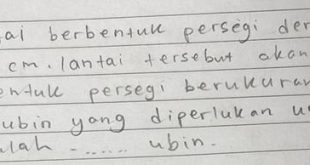 berbentuk persegi
cm. lantai tersebut akan
persegi berukuran
ubin yang diperlukan
...... ubin.